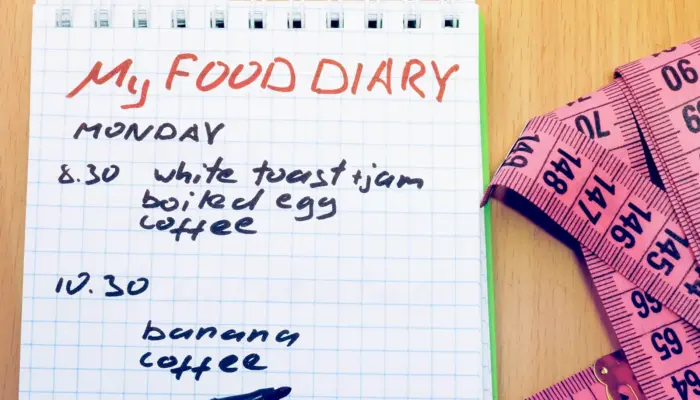 My FOOD DIARY
MONDAY
8.30 white toast + jam
boiled egg
coffee
10.30
banana
coffee
90
69
70
149
148
147
146
145
66
65
64